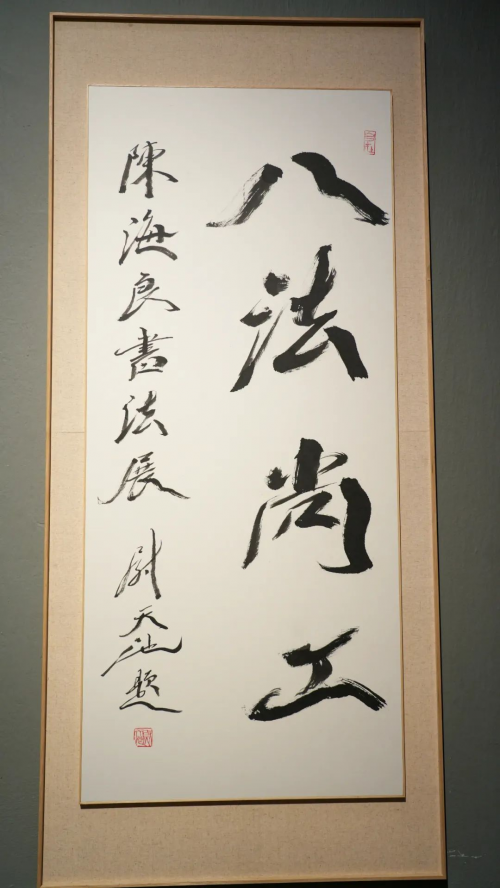 八法尚工
陳海良書法展 尉天池題